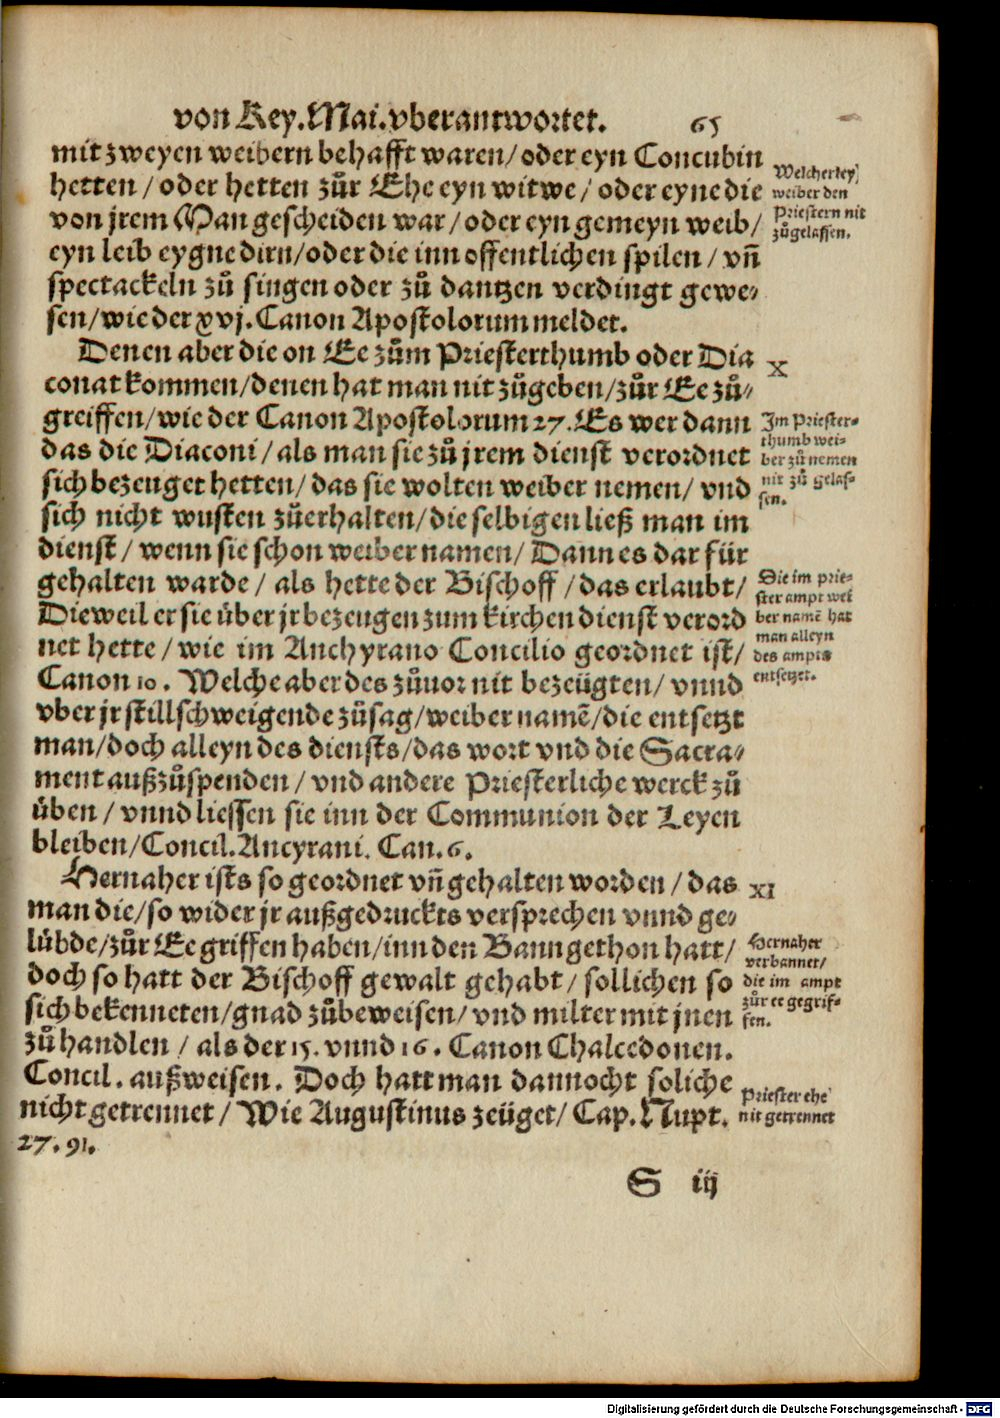 von Key. Mai. vberantwortet. 65
mit zweyen weibern behafft waren / oder eyn Concubin
hetten / oder hetten zůr Ehe eyn witwe / oder eyne die
von jrem Man gescheiden war / oder eyn gemeyn weib /
eyn leib eygne dirn / oder die inn offentlichen spilen / vn̄
spectackeln zů singen oder zů dantzen verdingt gewe⸗
sen / wie der xvj. Canon Apostolorum meldet.
Welcherley
weiber den
Priestern nit
zůgelassen.
Denen aber die on Ee zům Priesterthumb oder Dia
conat kommen / denen hat man nit zůgeben / zůr Ee zů⸗
greiffen / wie der Canon Apostolorum 27. Es wer dann
das die Diaconi / als man sie zů jrem dienst verordnet
sich bezeuget hetten / das sie wolten weiber nemen / vnd
sich nicht wusten zůerhalten / die selbigen ließ man im
dienst / wenn sie schon weiber namen / Dann es dar für
gehalten warde / als hette der Bischoff / das erlaubt /
Dieweil er sie über jr bezeugen zum kirchen dienst verord
net hette / wie im Anchyrano Concilio geordnet ist /
Canon 10. Welche aber des zůuor nit bezeügten / vnnd
vber jr stillschweigende zůsag / weiber namē / die entsetzt
man / doch alleyn des diensts / das wort vnd die Sacra⸗
ment außzůspenden / vnd andere Priesterliche werck zů
üben / vnnd liessen sie inn der Communion der Leyen
bleiben / Concil. Ancyrani. Can. 6.
X
Im Priester⸗
thumb wei⸗
ber zů nemen
nit zů gelas⸗
sen.
Die im prie⸗
ster ampt wei
ber namē hat
man alleyn
des ampts
entsetzet.
Hernaher ists so geordnet vn̄ gehalten worden / das
man die / so wider jr außgedruckts versprechen vnnd ge⸗
lübde / zůr Ee griffen haben / inn den Bann gethon hatt /
doch so hatt der Bischoff gewalt gehabt / sollichen so
sich bekenneten / gnad zůbeweisen / vnd milter mit jnen
zů handlen / als der 15. vnnd 16. Canon Chalcedonen.
Concil. außweisen. Doch hatt man dannocht soliche
nicht getrennet / Wie Augustinus zeüget / Cap. Nupt.
27. 91.
XI
Hernaher
verbannet /
die im ampt
zůr ee gegrif⸗
fen.
Priester ehe
nit getrennet
S iij
Digitalisierung gefördert durch die Deutsche Forschungsgemeinschaft - DFG